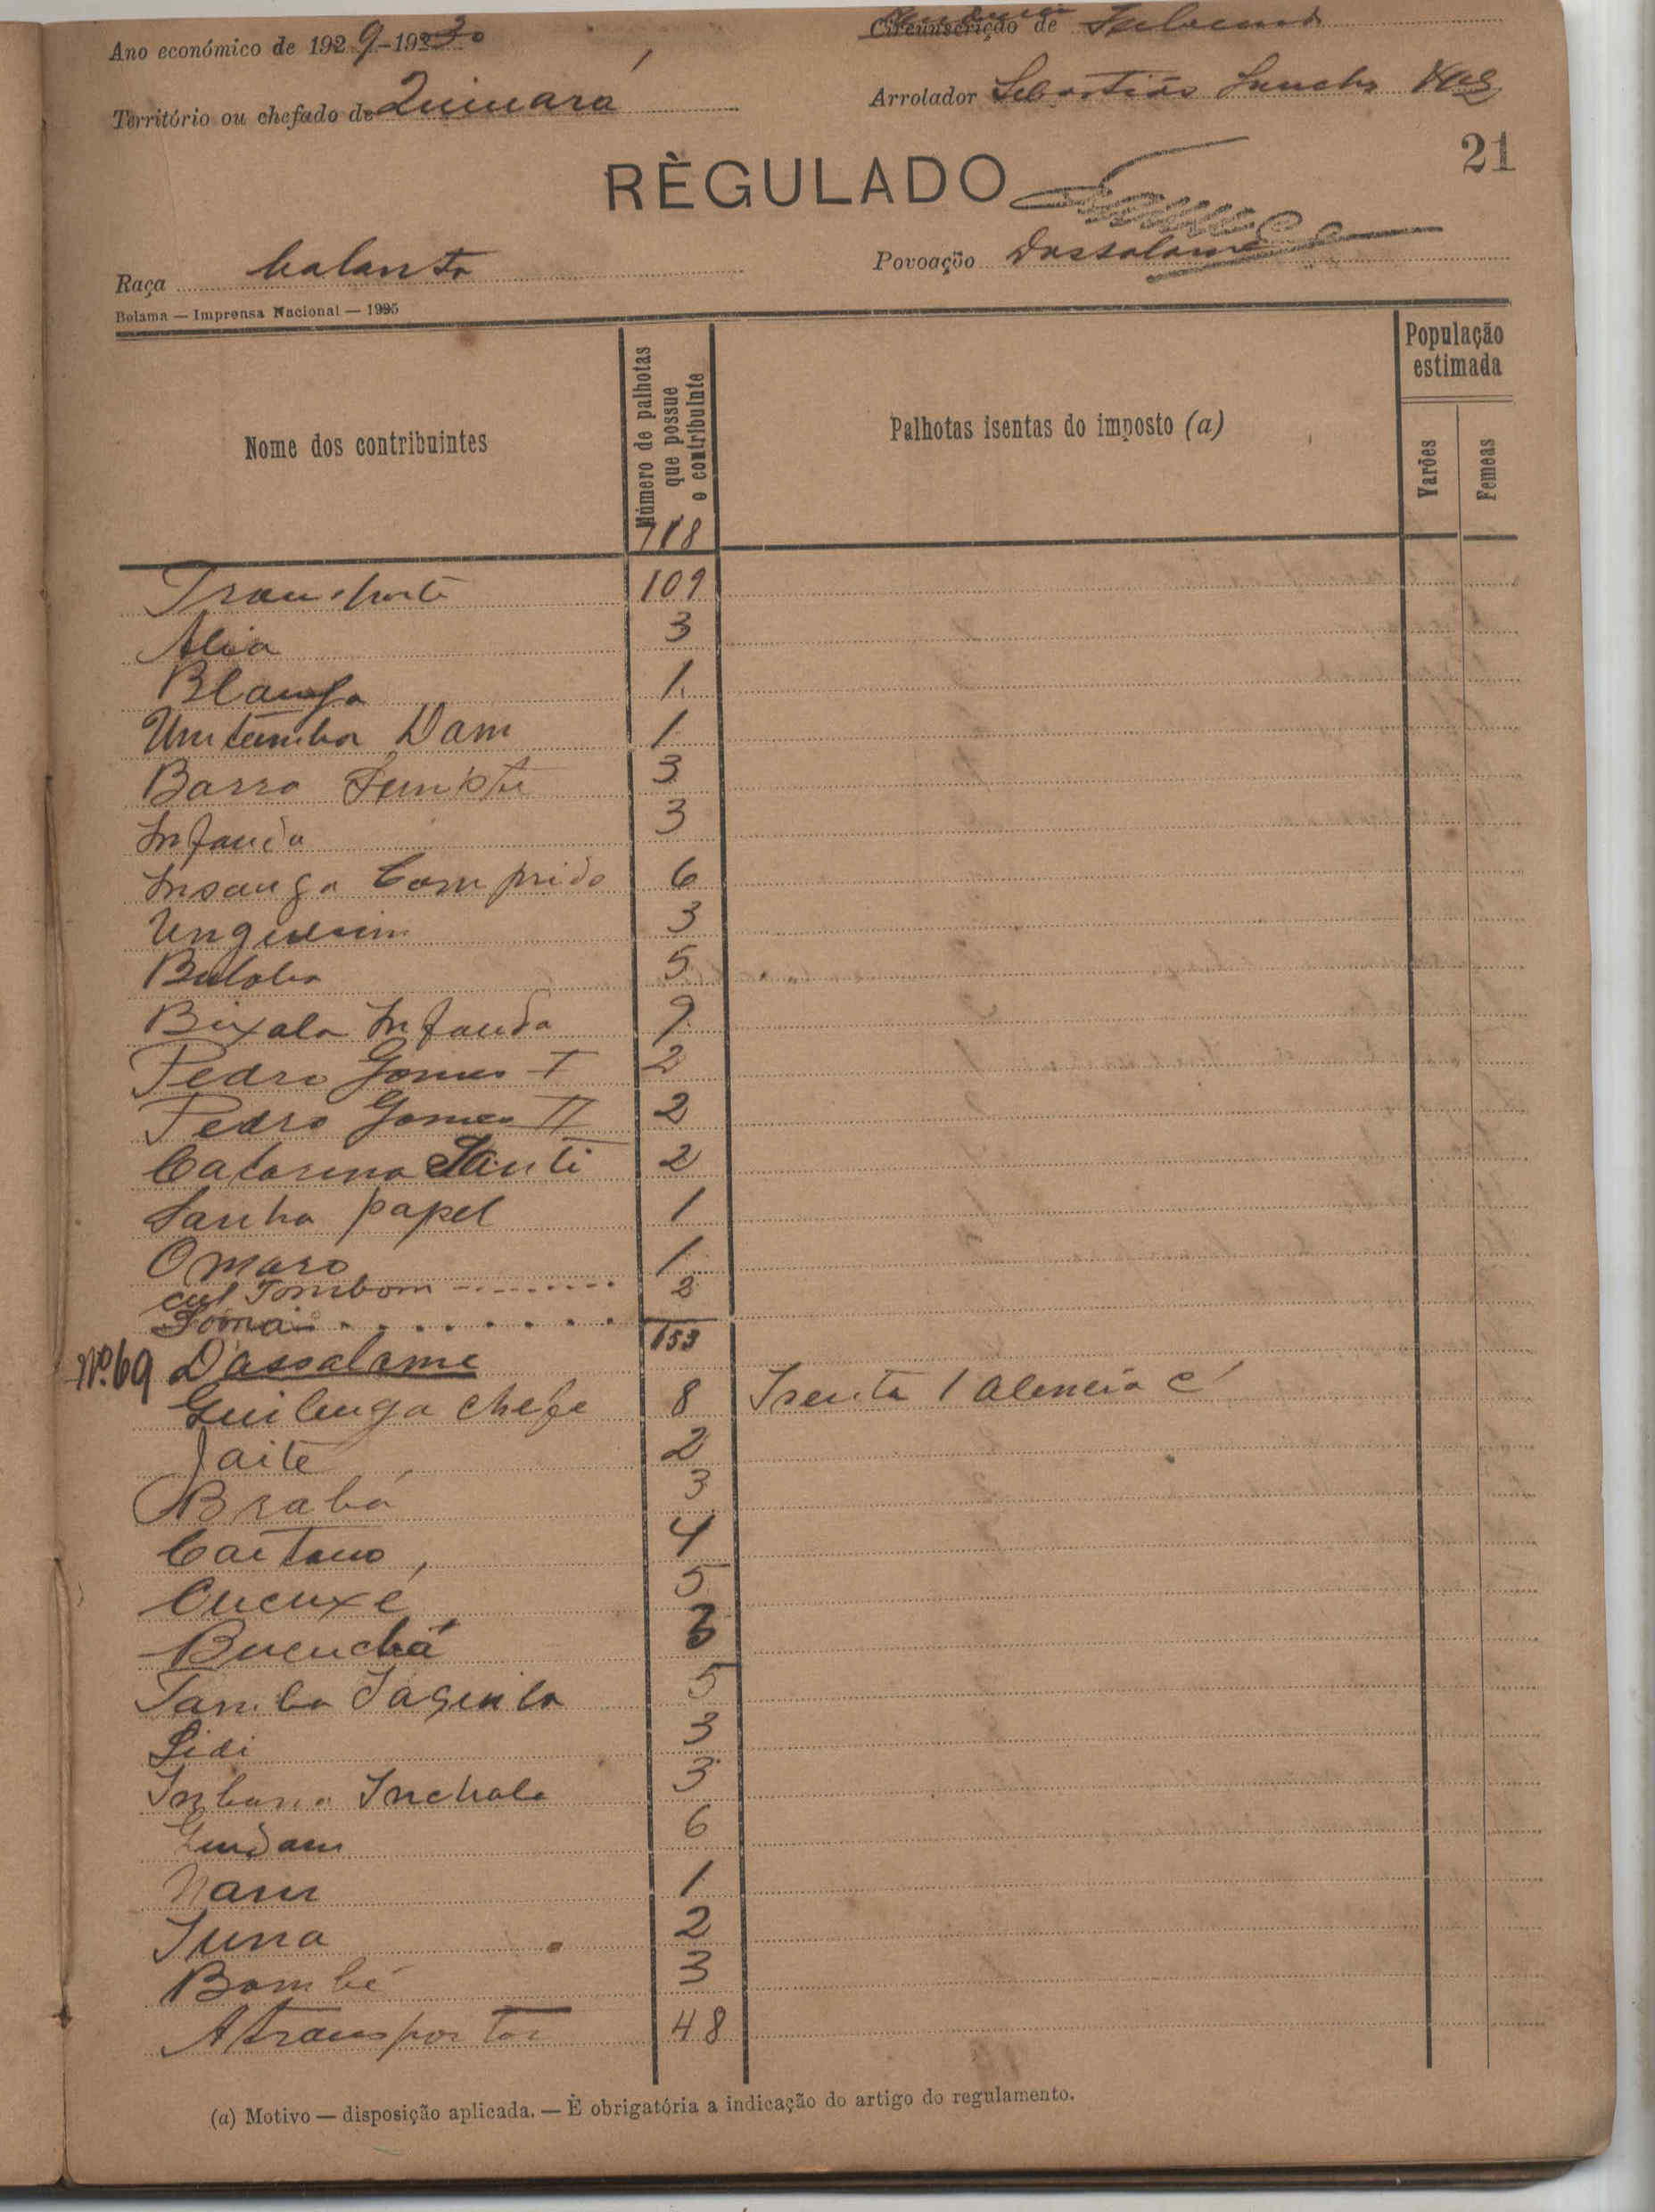 Ano económico de 1929-1930
Circunscrição de
Território ou chefado de Quinará
Arrolador Sebastião
21
RÈGULADO
Raça balanta
Povoação Dassalame
Bolama — Imprensa Nacional — 1925
Nome dos contribuintes
Número de palhotas que possue o contribuinte
Palhotas isentas do imposto (a)
População estimada
Varões
Femeas
718
Transporte 109
Alia 3
Blanga 1
Untamba Dam 1
Barro 3
Infanda 3
Insanga Comprido 6
Unguim 3
Buloba 5
Bixala Infanda 9
Pedro Gomes I 2
Pedro Gomes II 2
Catarina Santi 2
Sanha papel 1
Omaro 1
Tombom 2
Soma 153
Nº 69 Dassalame
Guilenga chefe 8 Isenta 1
Jaité 2
Brabá 3
Caetano 4
Cucuxé 5
Bucuchá 3
Tamba 5
Sidi 3
Inchala 3
6
Nam 1
Iuna 2
Bombé 3
A transportar 48
(a) Motivo — disposição aplicada. — È obrigatória a indicação do artigo do regulamento.